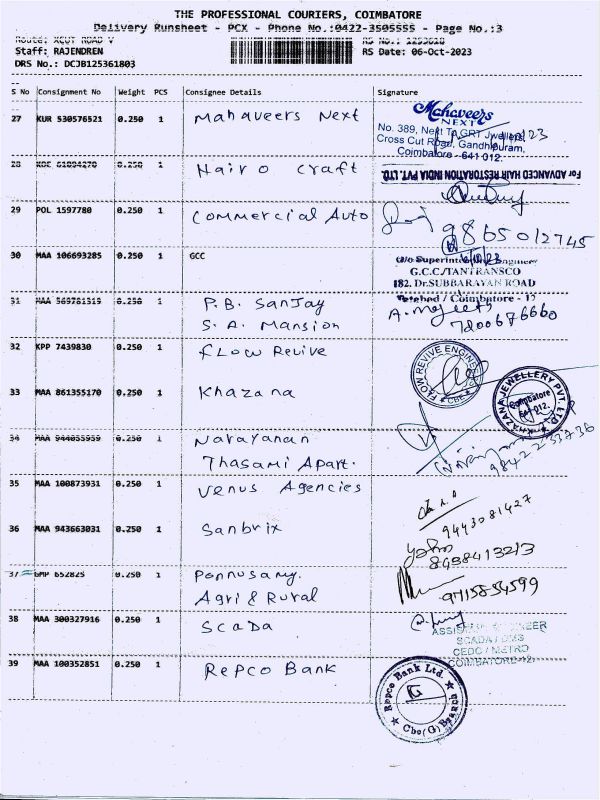 THE PROFESSIONAL COURIERS, COIMBATORE
Delivery Runsheet - PCX - Phone No.:0422-3505555 - Page No.:3
Route: XCUT ROAD V
RS No.: 1253618
Staff: RAJENDREN
RS Date: 06-Oct-2023
DRS No.: DCJB125361803
S No Consignment No Weight PCS Consignee Details Signature
27 KUR 530576521 0.250 1 Mahaveers Next
Mahaveers
NEXT
No. 389, Next To GRT Jwellers,
Cross Cut Road, Gandhipuram,
Coimbatore - 641 012.
28 61094270 0.250 1 Hairo craft
For ADVANCED HAIR RESTORATION INDIA PVT. LTD.
29 POL 1597780 0.250 1 Commercial Auto
9865012745
30 MAA 106693285 0.250 1 GCC
O/o Superintending Engineer
G.C.C./TANTRANSCO
182, Dr.SUBBARAYAN ROAD
Tatabad / Coimbatore - 12
31 MAA 569781319 0.250 1 P.B. Sanjay
S. A. Mansion
7200676660
32 KPP 7439830 0.250 1 Flow Revive
FLOW REVIVE ENGINEE
CBE
33 MAA 861355170 0.250 1 Khazana
KHAZANA JEWELLERY PVT. LTD.
Coimbatore
641 012.
34 MAA 944055959 0.250 1 Narayanan
Thasami Apart.
35 MAA 100873931 0.250 1 Venus Agencies
9443081427
36 MAA 943663031 0.250 1 Sanbrix
8438413213
37 GMP 652825 0.250 1 Ponnusamy.
Agri & Rural
38 MAA 300327916 0.250 1 Scada
ASSISTANT ENGINEER
SCADA / DMS
CEDC / METRO
COIMBATORE-12
39 MAA 100352851 0.250 1 Repco Bank
Repco Bank Ltd.
Cbe (G) Branch